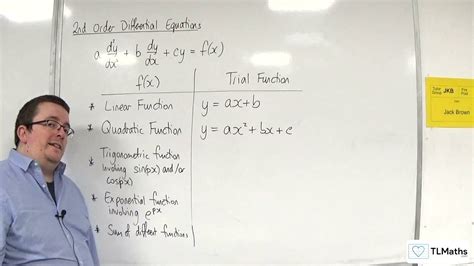 2nd Order Differential Equations
a d²y/dx² + b dy/dx + cy = f(x)
f(x) Trial Function
* Linear Function y = ax+b
* Quadratic Function y = ax² + bx + c
* Trigonometric function
involving sin(px) and/or
cos(px)
* Exponential function
involving e^px
* Sum of different functions
Tutor Group
JKB
Jack Brown
TLMaths